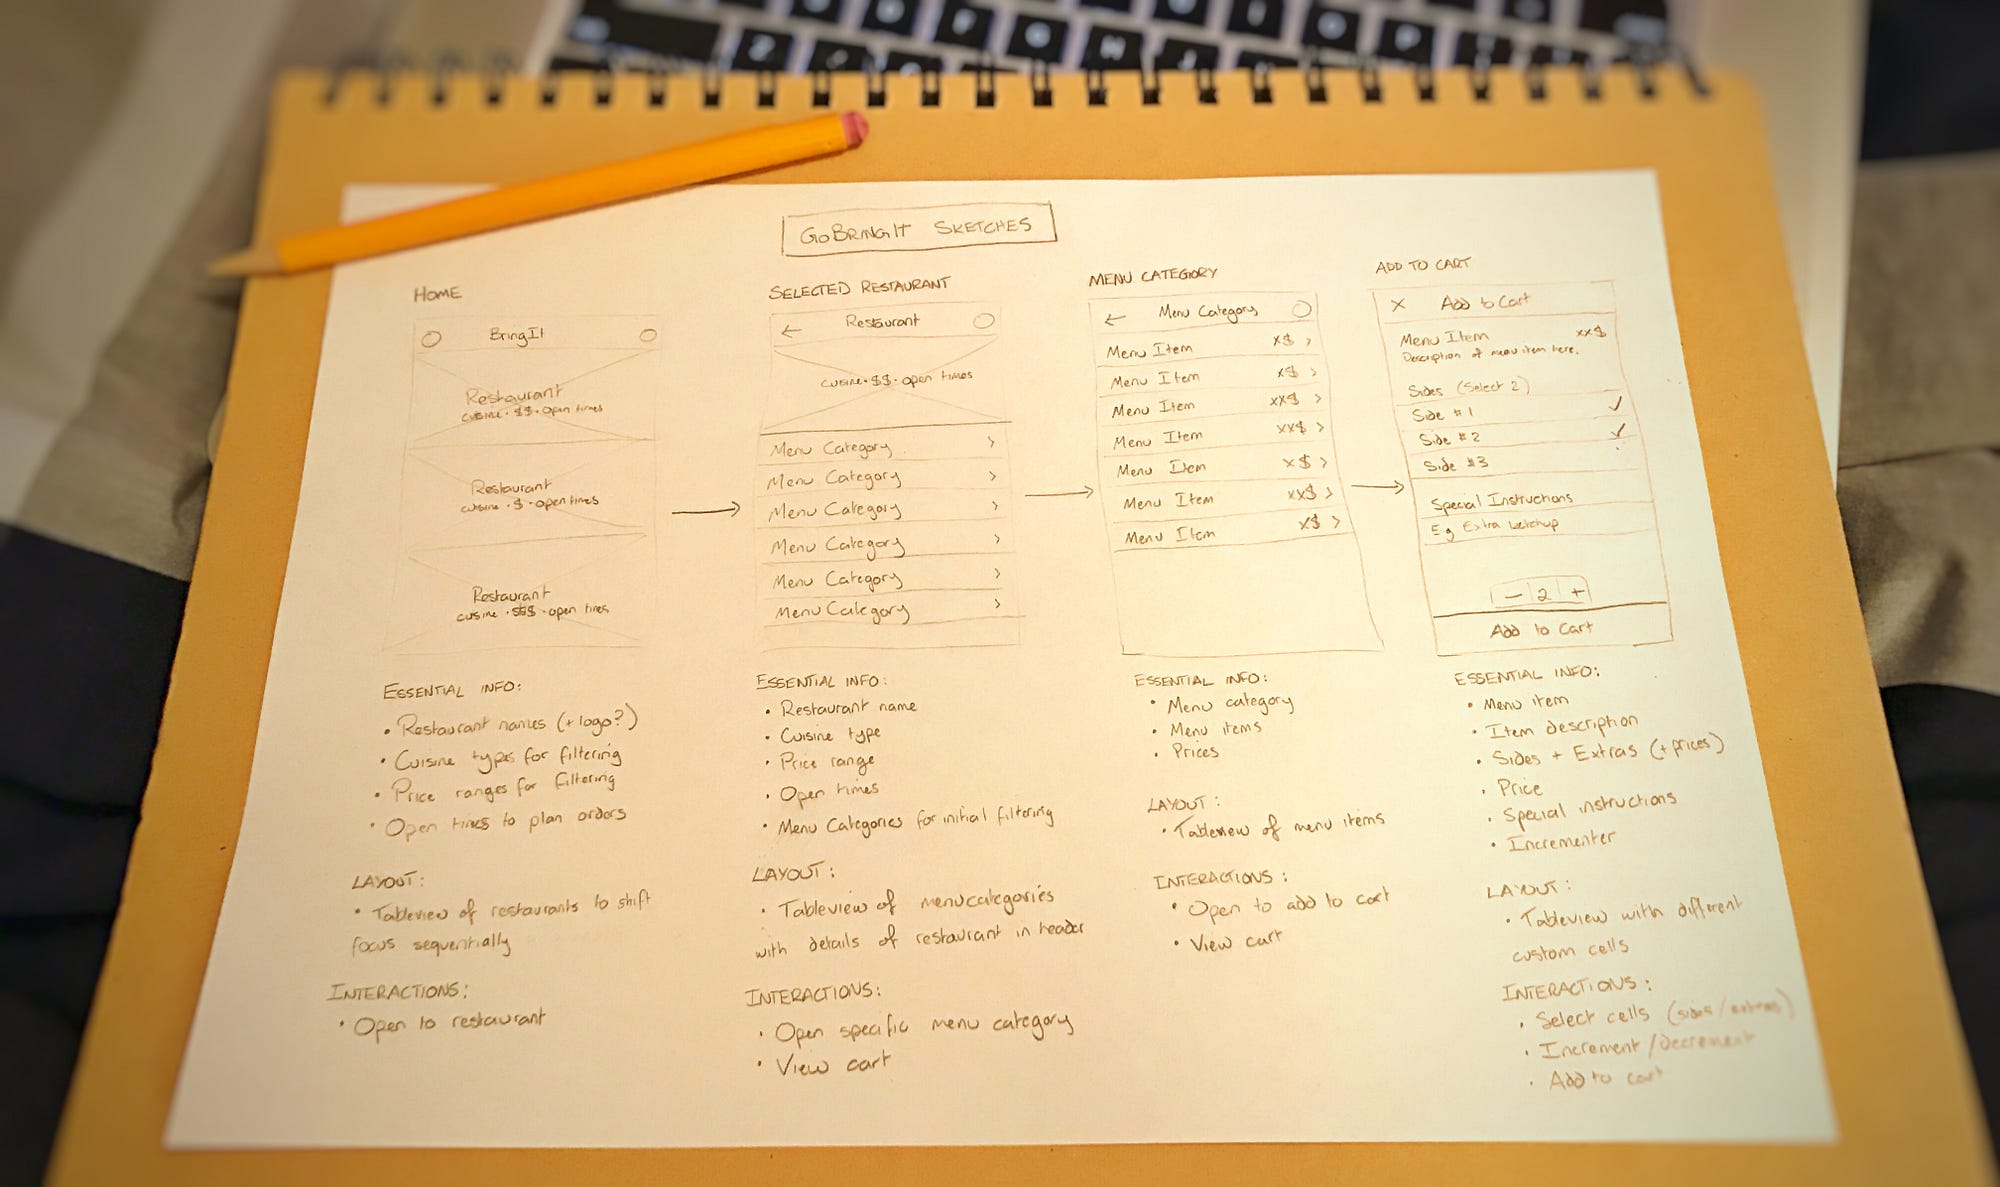 GoBringIt Sketches
HOME
BringIt
Restaurant
cuisine · $$ · open times
Restaurant
cuisine · $ · open times
Restaurant
cuisine · $$$ · open times
ESSENTIAL INFO:
• Restaurant names (+ logo?)
• Cuisine types for filtering
• Price ranges for filtering
• Open times to plan orders
LAYOUT:
• Tableview of restaurants to shift
focus sequentially
INTERACTIONS:
• Open to restaurant
SELECTED RESTAURANT
← Restaurant
cuisine · $$ · open times
Menu Category >
Menu Category >
Menu Category >
Menu Category >
Menu Category >
Menu Category >
ESSENTIAL INFO:
• Restaurant name
• Cuisine type
• Price range
• Open times
• Menu Categories for initial filtering
LAYOUT:
• Tableview of menu categories
with details of restaurant in header
INTERACTIONS:
• Open specific menu category
• View cart
MENU CATEGORY
← Menu Category
Menu Item x$ >
Menu Item x$ >
Menu Item xx$ >
Menu Item xx$ >
Menu Item x$ >
Menu Item xx$ >
Menu Item x$ >
ESSENTIAL INFO:
• Menu category
• Menu items
• Prices
LAYOUT:
• Tableview of menu items
INTERACTIONS:
• Open to add to cart
• View cart
ADD TO CART
X Add to Cart
Menu Item xx$
Description of menu item here.
Sides (Select 2)
Side #1 ✓
Side #2 ✓
Side #3
Special Instructions
Eg Extra ketchup
- 2 +
Add to Cart
ESSENTIAL INFO:
• Menu item
• Item description
• Sides + Extras (+ prices)
• Price
• Special instructions
• Incrementer
LAYOUT:
• Tableview with different
custom cells
INTERACTIONS:
• Select cells (sides/extras)
• Increment/Decrement
• Add to cart